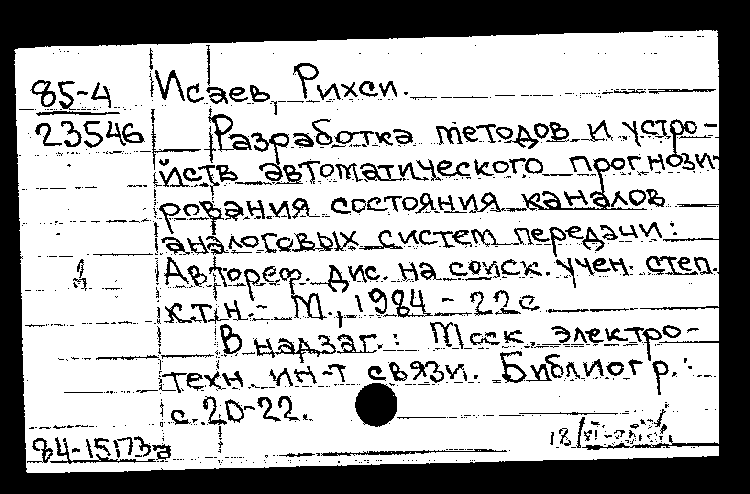 85-4
23546
Исаев, Рихси.
Разработка методов и устро-
йств автоматического прогнози-
рования состояния каналов
аналоговых систем передачи:
Автореф. дис. на соиск. учен. степ.
к.т.н. - М., 1984 - 22с
В надзаг.: Моск. электро-
техн. ин-т связи. Библиогр.:
с. 20-22.
84-15173а
18/VI-